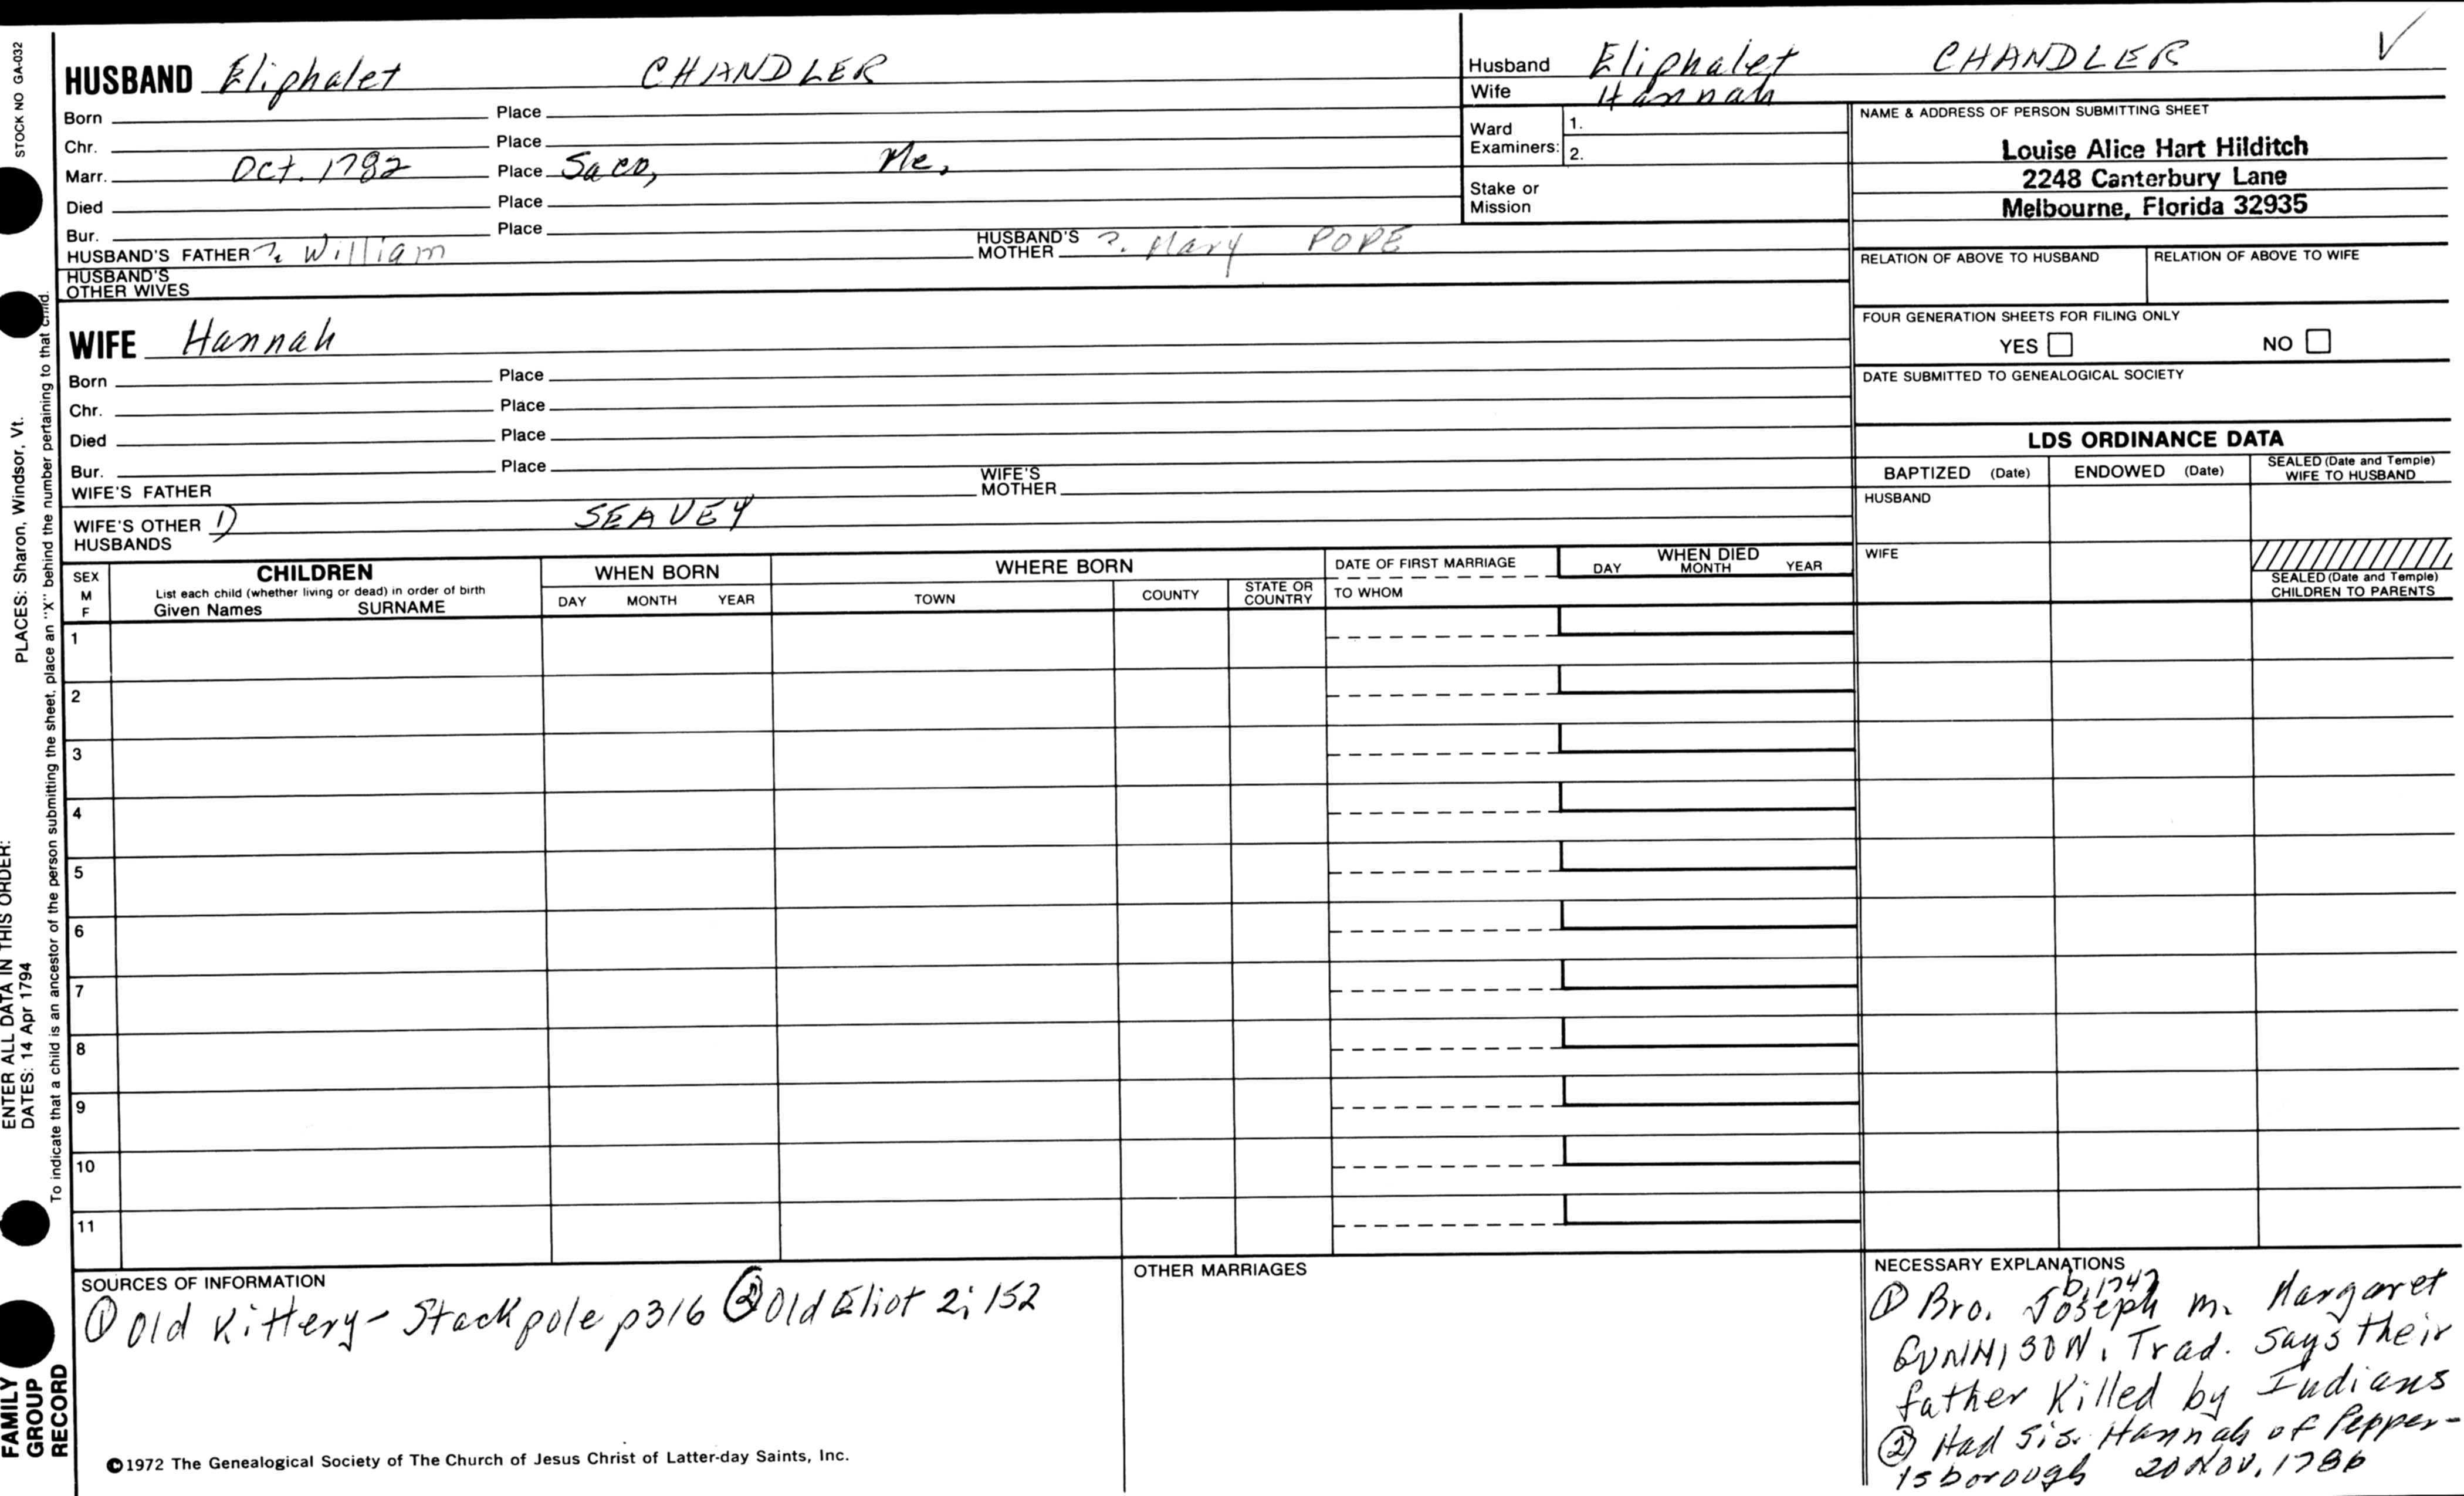 STOCK NO GA-032
PLACES: Sharon, Windsor, Vt.
ENTER ALL DATA IN THIS ORDER:
DATES: 14 Apr 1794
To indicate that a child is an ancestor of the person submitting the sheet, place an "X" behind the number pertaining to that child.
FAMILY
GROUP
RECORD
HUSBAND Eliphalet CHANDLER
Born Place
Chr. Place
Marr. Oct. 1782 Place Saco, Me,
Died Place
Bur. Place
HUSBAND'S FATHER ?. William HUSBAND'S MOTHER ?. Mary POPE
HUSBAND'S
OTHER WIVES
Husband Eliphalet CHANDLER √
Wife Hannah
Ward
Examiners:
1.
2.
Stake or
Mission
NAME & ADDRESS OF PERSON SUBMITTING SHEET
Louise Alice Hart Hilditch
2248 Canterbury Lane
Melbourne, Florida 32935
RELATION OF ABOVE TO HUSBAND RELATION OF ABOVE TO WIFE
FOUR GENERATION SHEETS FOR FILING ONLY
YES NO
DATE SUBMITTED TO GENEALOGICAL SOCIETY
WIFE Hannah
Born Place
Chr. Place
Died Place
Bur. Place
WIFE'S FATHER WIFE'S MOTHER
WIFE'S OTHER 1) SEAVEY
HUSBANDS
LDS ORDINANCE DATA
BAPTIZED (Date) ENDOWED (Date) SEALED (Date and Temple) WIFE TO HUSBAND
HUSBAND
WIFE
SEALED (Date and Temple)
CHILDREN TO PARENTS
SEX
M
F
CHILDREN
List each child (whether living or dead) in order of birth
Given Names SURNAME
WHEN BORN
DAY MONTH YEAR
WHERE BORN
TOWN COUNTY STATE OR COUNTRY
DATE OF FIRST MARRIAGE
TO WHOM
WHEN DIED
DAY MONTH YEAR
1
2
3
4
5
6
7
8
9
10
11
SOURCES OF INFORMATION
① Old Kittery - Stackpole p316 ② Old Eliot 2; 152
©1972 The Genealogical Society of The Church of Jesus Christ of Latter-day Saints, Inc.
OTHER MARRIAGES
NECESSARY EXPLANATIONS
b. 1747
① Bro. Joseph m. Margaret
GUNNISON. Trad. says their
father Killed by Indians
② Had sis. Hannah of Pepper-
1sborough 20 Nov. 1786